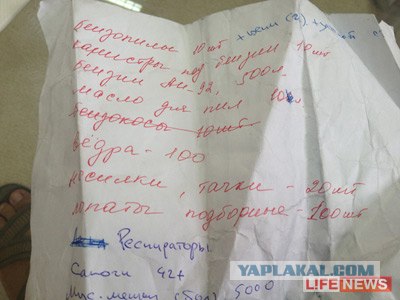 бензопилы 10шт + цепи (2) +
канистры под бензин 10шт
бензин Аи-92, 500л
масло для пил 10л
бензокосы 10шт
вёдра - 100
носилки, тачки - 20шт
лопаты подборные - 100шт
Респираторы
Сапоги 42+
Мус. мешки (бол) 5000
YAPLAKAL.COM
LIFE NEWS